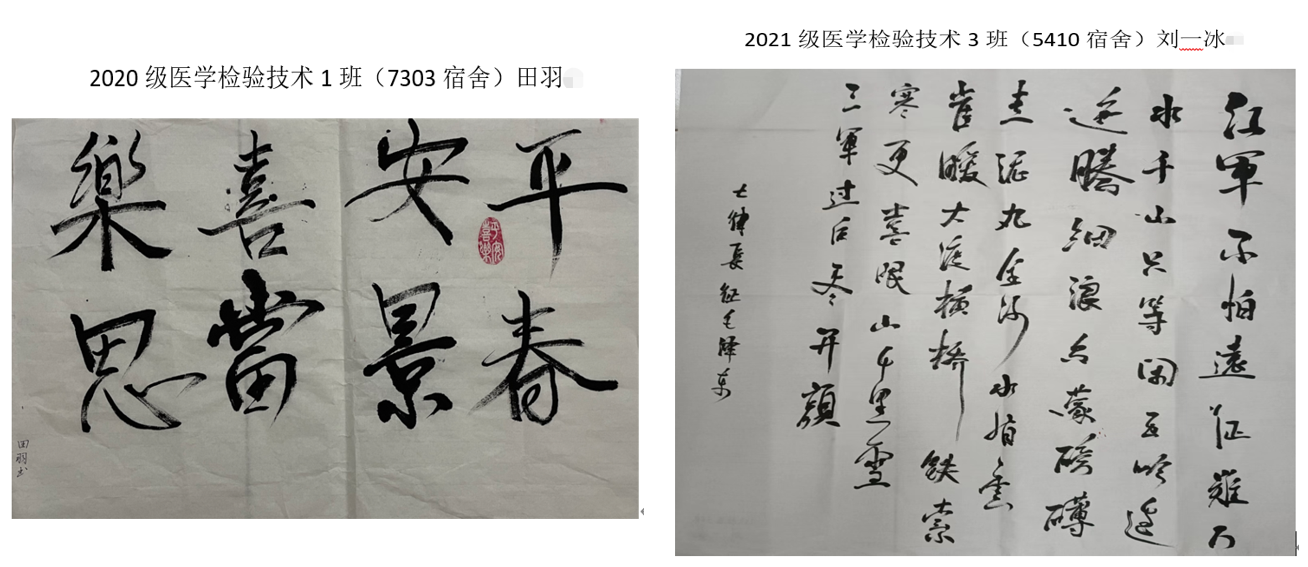 2020 级医学检验技术 1 班（7303 宿舍）田羽
平安喜樂
春景當思
平安喜樂
田羽书
2021 级医学检验技术 3 班（5410 宿舍）刘一冰
红軍不怕遠征難万
水千山只等闲五岭逶
迤腾细浪乌蒙磅礴
走泥丸金沙水拍雲
崖暖大渡横桥铁索
寒更喜岷山千里雪
三軍过后尽开顔
七律長征毛泽东